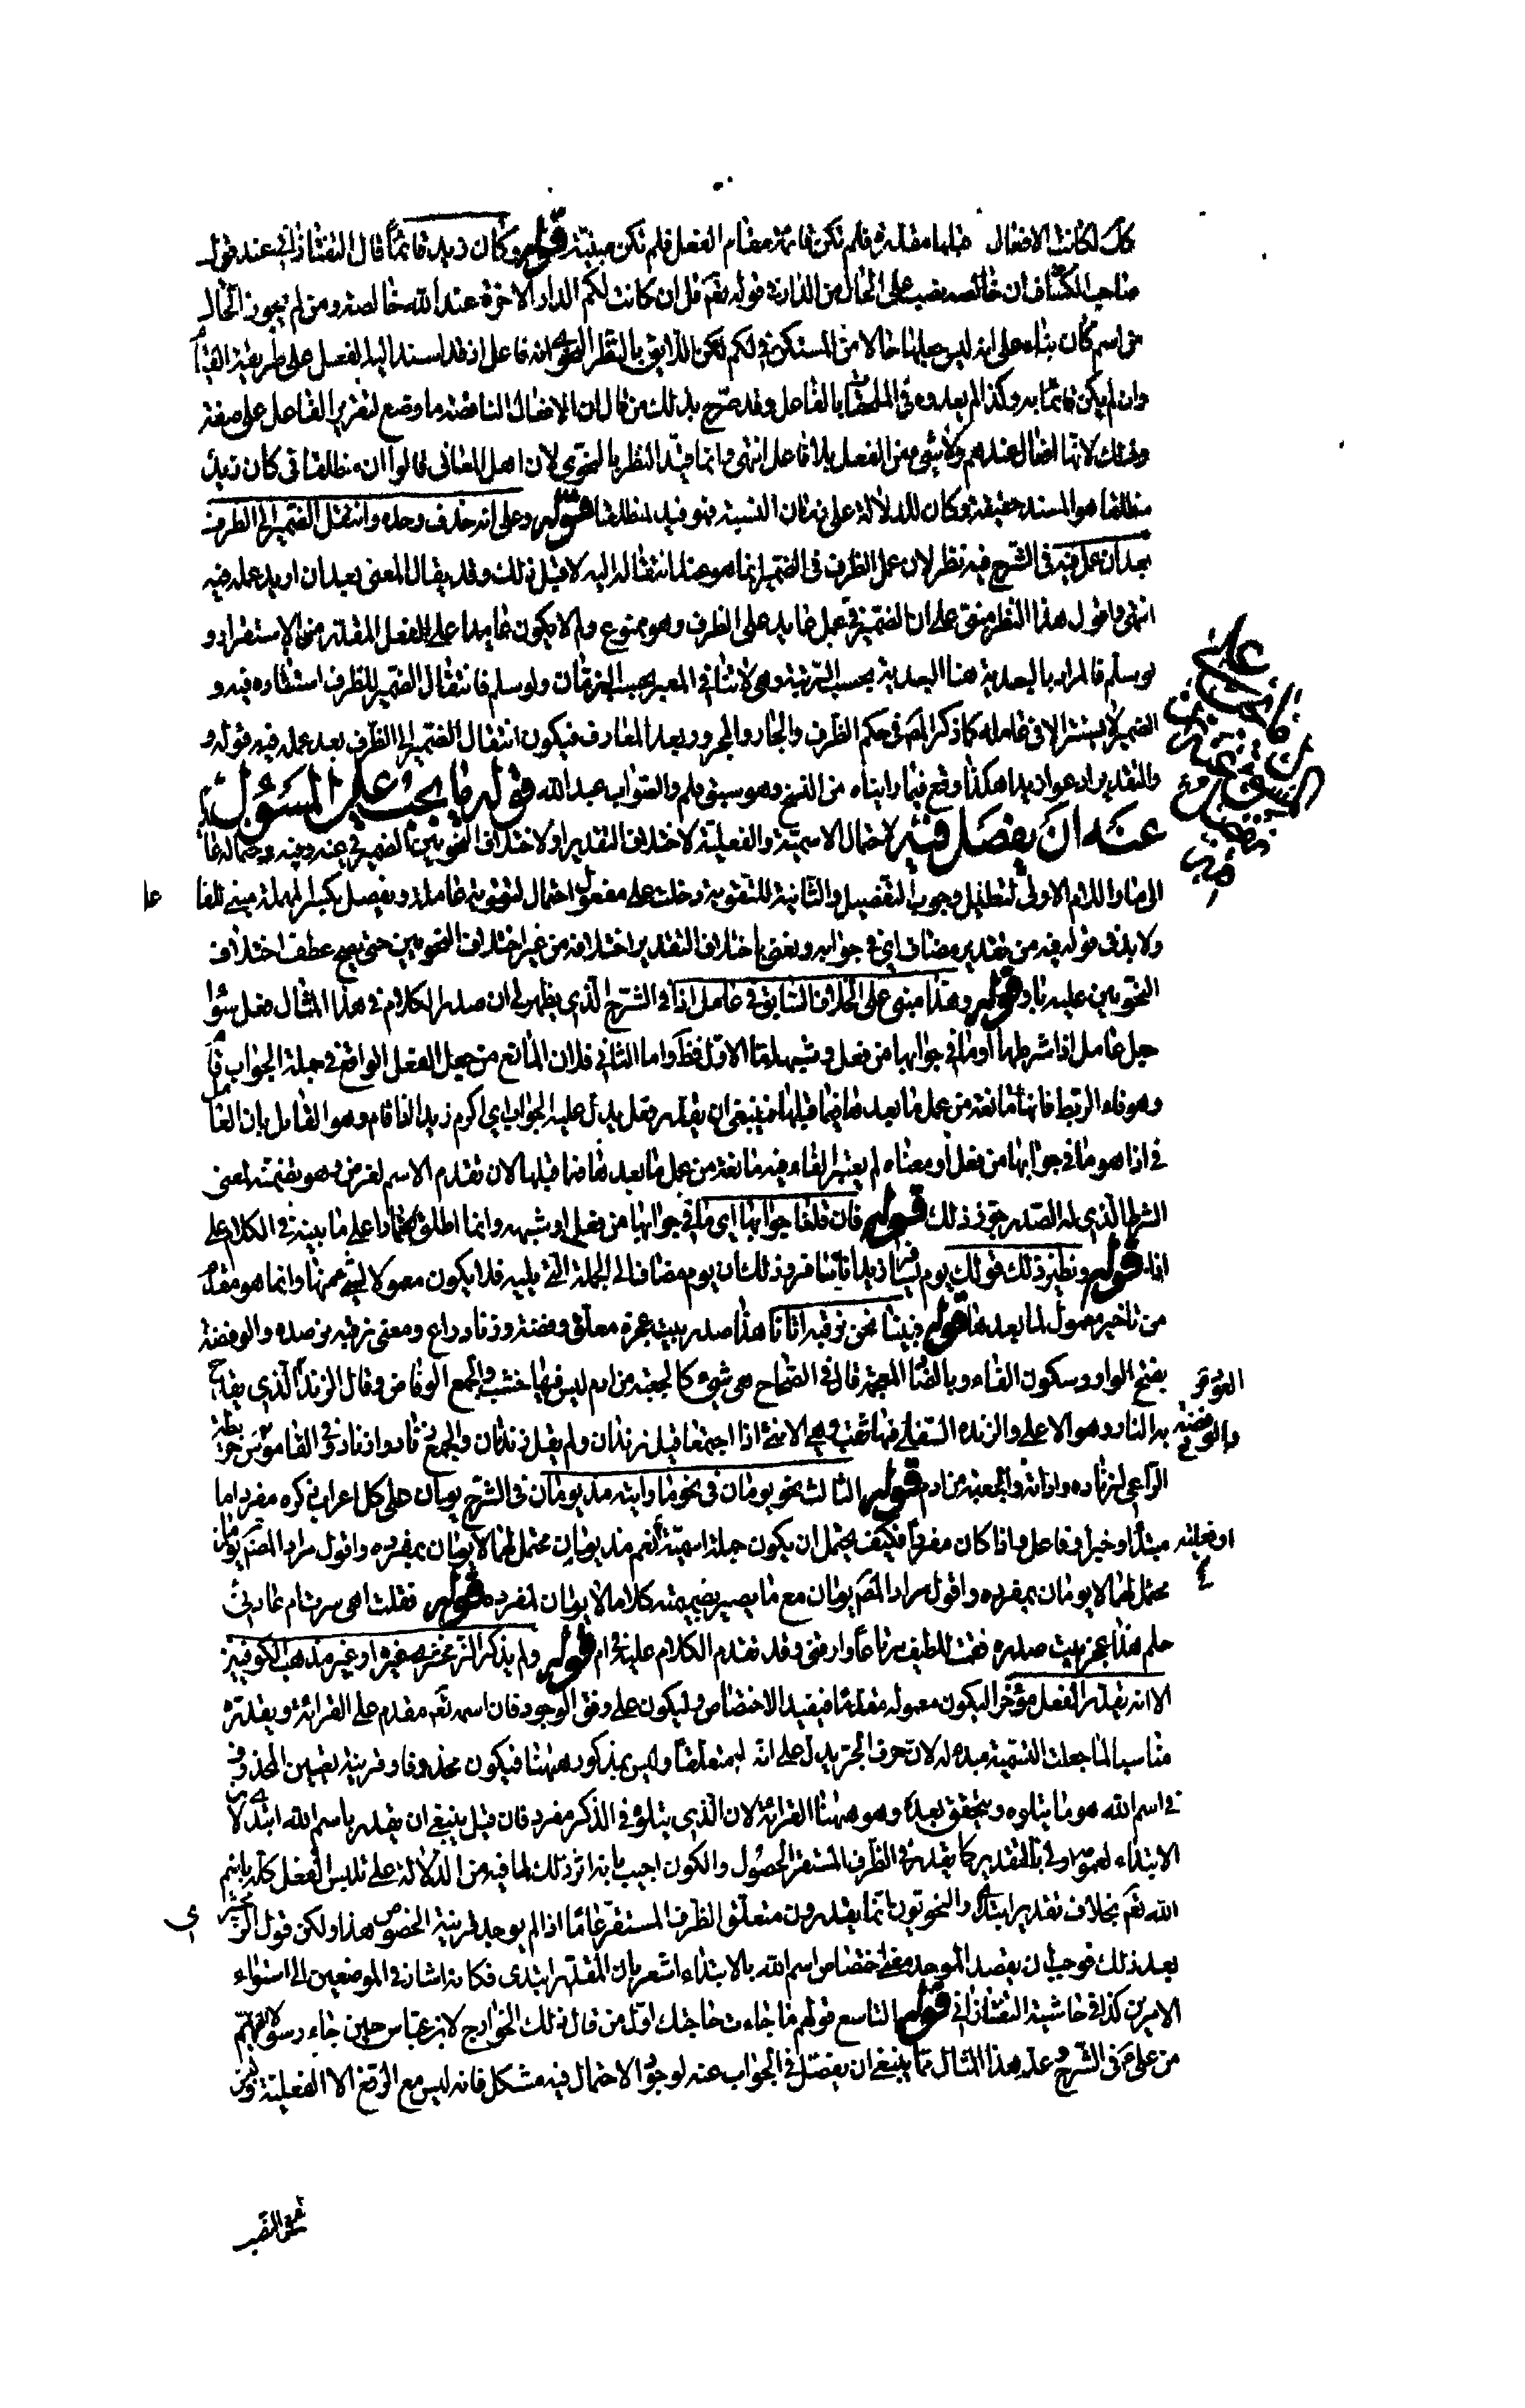 كان لكانت الافعال قبلها مقدرة فلم تكن قائمة مقام الفعل فلم تكن مبنية قوله وكان زيد قائما قال التفتازاني عند قول
صاحب الكشاف ان خالصة نصب على الحال من الدار في قوله تعم قل ان كانت لكم الدار الاخرة عند الله خالصة ومن لم يجوز الحال
من اسم كان بناء على انه ليس جعلها حالا من المستكن في لكم لكن اللايق بالنظر النحوي انه فاعل اذ قد اسند اليه الفعل على طريقة القيام
وان لم يكن قائما به ولذا لم يعدوه في الملحقات بالفاعل وقد صرح بذلك من قال ان الافعال الناقصة ما وضع لتقرير الفاعل على صفة
وذلك لانها افعال عندهم ولا شيء من الفعل بلا فاعل انتهى وانما قيد النظر بالنحوي لان اهل المعاني قالوا ان منطلقا في كان زيد
منطلقا هو المسند حقيقة وكان للدلالة على زمان النسبة فهو قيد لمنطلقا قوله وعلى انه حذف وحده وانتقل الضمير الى الظرف
بعد ان عمل فيه في الشرح فيه نظر لان عمل الظرف في الضمير انما هو عند انتقاله اليه لا قبل ذلك وقد يقال المعنى بعد ان اريد عمله فيه
انتهى واقول هذا النظر مبني على ان الضمير في عمل عايد على الظرف وهو ممنوع ولم لا يكون عايدا على الفعل المقدر من الاستقرار و
لو سلم فالمراد بالبعدية هنا البعدية بحسب الرتبة وهي لا تنافي المعية بحسب الزمان ولو سلم فانتقال الضمير للظرف استتاره فيه و
الضمير لا يستتر الا في عامله كما ذكر المص في حكم الظرف والجار والمجرور بعد المعارف فيكون انتقال الضمير الى الظرف بعد عمله فيه قوله و
والتقدير ادعوا زيدا هكذا وقع فيما رايناه من النسخ وهو سبق قلم والصواب عبد الله قوله ما يجب على المسؤل
عنه ان يفصل فيه لاحتمال الاسمية والفعلية لاختلاف التقدير او لاختلاف النحويين الضمير في عنه وفيه
الى ما واللام الاولى لتعليل وجوب التفصيل والثانية للتقوية دخلت على مفعول احتمال لتقوية عامله ويفصل بكسر المهملة مبني للفا
ولا بد في قوله فيه من تقدير مضاف اي في جوابه
النحويين عليه باو قوله وهذا مبني على الخلاف السابق في عامل اذا في الشرح الذي يظهر لي ان صدر الكلام في هذا المثال فعل سوا
جعل عامل اذا شرطها او ما في جوابها من فعل وشبهه اما الاول فظ واما الثاني فلان المانع من جعل الفعل الواقع في جملة الجواب
وهو فاء الربط فانها مانعة من عمل ما بعدها فيما قبلها فينبغي ان يقدر فعل يدل عليه الجواب اي اكرم زيد اذا قام وهو القايل بان العا
في اذا هو ما في جوابها من فعل او معناه لم يعتبر الفاء فيه مانعة من عمل ما بعدها فيما قبلها لان تقدم الاسم لغرض وهو تضمنه معنى
الشرط الذي له الصدر جوز ذلك قوله فان قلنا جوابها اي ما في جوابها من فعل او شبهه وانما اطلق اعتمادا على ما بينه في الكلام على
اذا قوله ونظير ذلك قولك يوم يسافر زيد انا مسافر وذلك ان يوم مضاف الى الجملة التي يليه فلا يكون معمولا لشيء منها وانما هو مقدم
من تاخير معمول لما بعدها قوله فبينا نحن نرقبه اتانا هذا صدر بيت عجزه معلق وفضة وزناد راع ومعنى نرقبه نرصده والوفضة
بفتح الواو وسكون الفاء وبالضاد المعجمة قال في الصحاح هي شيء كالجعبة من ادم ليس فيها خشب والجمع الوفاض وقال الزند الذي يقدح
به النار وهو الاعلى والزنده السفلى فيها ثقب وهي الانثى اذا اجتمعا قيل زندان ولم يقل زندتان والجمع زناد وازناد وفي القاموس
الراعي لزناده واداته والجعبة من ادم قوله الثالث نحو يومان في نحو ما رايته مذ يومان في الشرح يومان على كل اعراب ذكره مفرد اما
مبتدا او خبر او فاعل واذا كان مفردا فكيف يحتمل ان يكون جملة اسمية نعم مذ يومان محتمل لها لا يومان بمفرده واقول مراد المص
محتمل لها لا يومان بمفرده واقول مراد المص يومان مع ما يصير بضميمته كلاما لا يومان لمفرده قوله فقلت اهي سرت ام عادني
حلم هذا عجز بيت صدره فقمت للطيف مرتاعا وارقني وقد تقدم الكلام عليه في ام قوله ولم يذكر الزمخشري غيره او غير مذهب الكوفيين
الا انه يقدر الفعل مؤخرا ليكون معموله مقدما فيفيد الاختصاص وليكون على وفق الوجود فان اسمه تعم مقدم على القرائة ويقدره
مناسبا لما جعلت التسمية مبدء له لان حرف الجر يدل على ان له متعلقا وليس بمذكور ههنا فيكون محذوفا وقرينة تعيين المحذوف
في اسم الله هو ما يتلوه ويتحقق بعده وهو ههنا القرائة لان الذي يتلو في الذكر مفرد فان قيل ينبغي ان يقدر باسم الله ابتدئ لا
الابتداء لعمومه اولى بالتقدير كما يقدر في الظرف المستقر الحصول والكون اجيب بانه اثر ذلك لما فيه من الدلالة على تلبس الفعل كله باسم
الله تعم بخلاف تقدير ابتدئ والنحويون انما يقدرون متعلق الظرف المستقر عاما اذا لم يوجد قرينة الخصوص هذا ولكن قول الزمخشري
بعد ذلك فوجب ان يقصد الموحد معنى اختصاص اسم الله بالابتداء اشعر بان المقدر ابتدئ فكانه اشار في الموضعين الى استواء
الامرين كذا في حاشية التفتازاني قوله التاسع قولهم ما جاءت حاجتك اول من قال ذلك الخوارج لابن عباس حين جاء رسولا اليهم
من علي ع في الشرح عد هذا المثال مما ينبغي ان يفصل في الجواب عنه لوجود الاحتمال فيه مشكل فانه ليس مع الرفع الا الفعلية